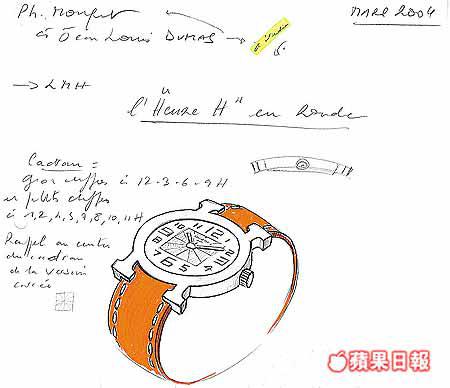 Ph. Mouquet
MARS 2004
à Jean Louis DUMAS
→ LMH
l'"Heure H" en Ronde
Cadran =
gros chiffres à 12-3-6-9H
et petits chiffres
à 1,2,4,5,7,8,10,11H
Rappel au centre
du cadran
de la version
carrée
12
6
蘋果日報